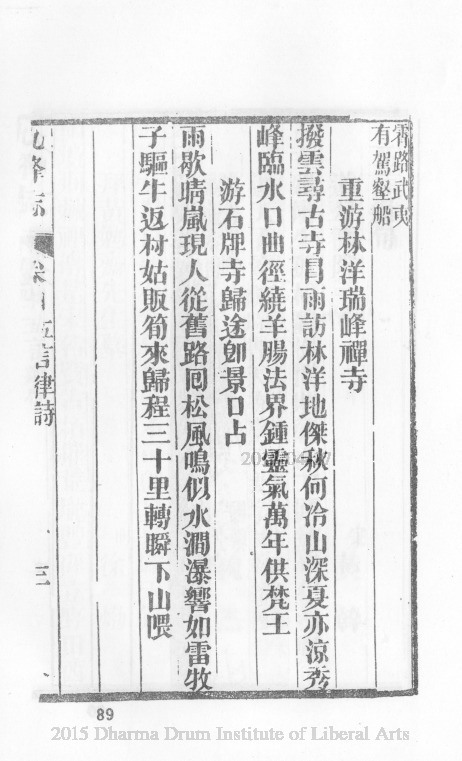 霄路武夷
有駕壑船
重游林洋瑞峰禪寺
撥雲尋古寺冐雨訪林洋地傑秋何冷山深夏亦涼秀
峰臨水口曲徑繞羊腸法界鍾靈氣萬年供梵王
游石牌寺歸途卽景口占
雨歇晴嵐現人從舊路囘松風鳴似水澗瀑響如雷牧
子驅牛返村姑販筍來歸程三十里轉瞬下山隈
九峰志 卷 五言律詩 三
89
2015 Dharma Drum Institute of Liberal Arts